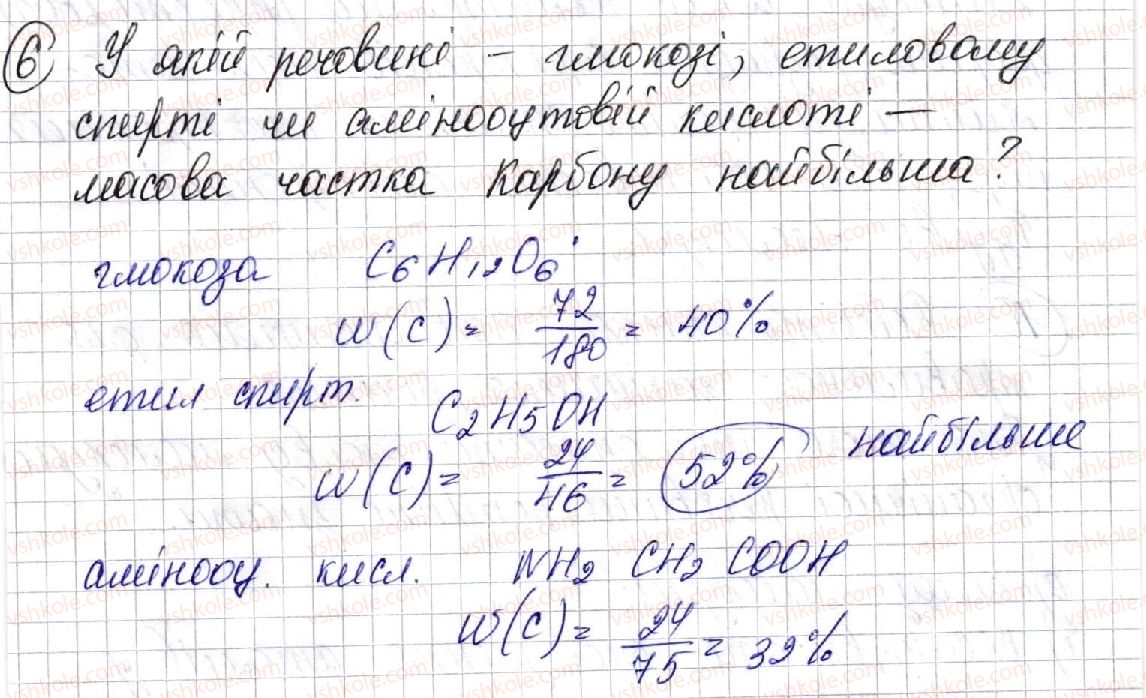 6 У якій речовині – глюкозі, етиловому
спирті чи амінооцтовій кислоті –
масова частка Карбону найбільша?
глюкоза C6H12O6
w(C) = 72/180 = 40%
етил спирт. C2H5OH
w(C) = 24/46 = 52% найбільше
амінооц. кисл. NH2 CH2 COOH
w(C) = 24/75 = 32%